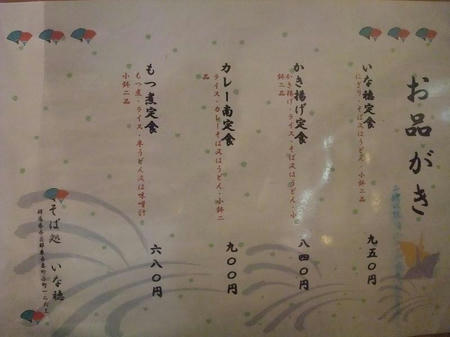 お品がき
いな穂定食
にぎり・そば又はうどん・小鉢二品
九五〇円
かき揚げ定食
かき揚げ・ライス・そば又はうどん・小鉢二品
八四〇円
カレー南定食
ライス・カレーそば又はうどん・小鉢二品
九〇〇円
もつ煮定食
もつ煮・ライス・半うどん又は味噌汁
小鉢二品
六八〇円
そば処 いな穂